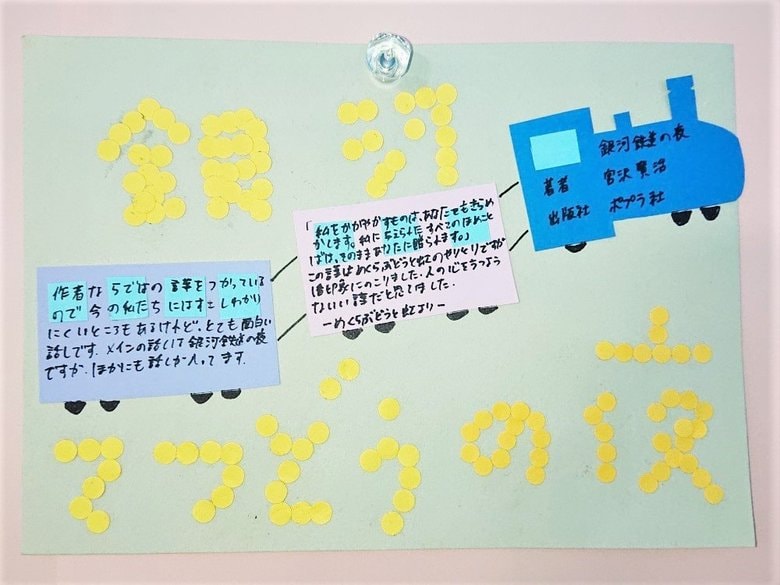 銀河
てつどうの夜
銀河鉄道の夜
著者 宮沢賢治
出版社 ポプラ社
「私をかがやかすものは、あなたをもきらめ
かします。私に与えられたすべてのほめこと
ばは、そのままあなたに贈られます。」
この言葉はめくらぶどうと虹のやりとりですが
1番印象にのこりました。人の心をうつよう
ないい話だと思いました。
ーめくらぶどうと虹よりー
作者ならではの言葉をつかっている
ので今の私たちにはすこしわかり
にくいところもあるけれど、とても面白い
話しです。メインの話しは銀河鉄道の夜
ですが、ほかにも話しが入ってます。